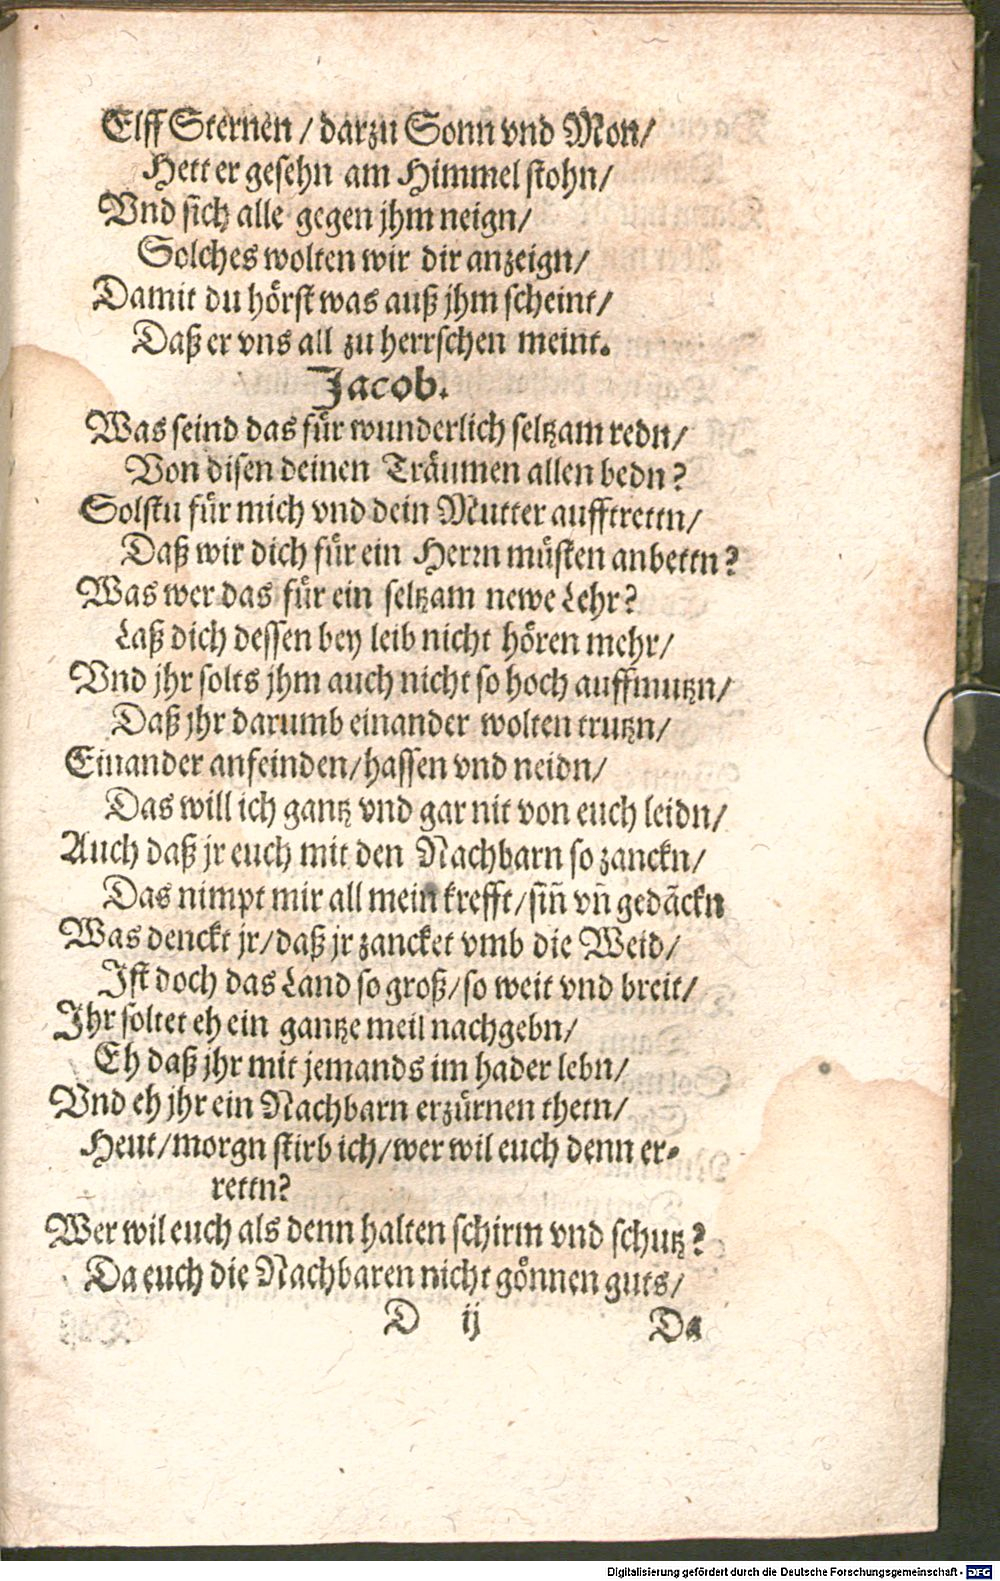 Elff Sternen / darzu Sonn vnd Mon /
Hett er gesehn am Himmel stohn /
Vnd sich alle gegen jhm neign /
Solches wolten wir dir anzeign /
Damit du hörst was auß jhm scheint /
Daß er vns all zu herrschen meint.
Jacob.
Was seind das für wunderlich seltzam redn /
Von disen deinen Träumen allen bedn?
Solstu für mich vnd dein Mutter aufftrettn /
Daß wir dich für ein Herrn müsten anbettn?
Was wer das für ein seltzam newe Lehr?
Laß dich dessen bey leib nicht hören mehr /
Vnd jhr solts jhm auch nicht so hoch auffmutzn /
Daß jhr darumb einander wolten trutzn /
Einander anfeinden / hassen vnd neidn /
Das will ich gantz vnd gar nit von euch leidn /
Auch daß jr euch mit den Nachbarn so zanckn /
Das nimpt mir all mein krefft / siñ vñ gedãckn
Was denckt jr / daß jr zancket vmb die Weid /
Ist doch das Land so groß / so weit vnd breit /
Ihr soltet eh ein gantze meil nachgebn /
Eh daß jhr mit jemands im hader lebn /
Vnd eh jhr ein Nachbarn erzürnen thetn /
Heut / morgn stirb ich / wer wil euch denn er-
rettn?
Wer wil euch als denn halten schirm vnd schutz?
Da euch die Nachbaren nicht gönnen guts /
D ij Da
Digitalisierung gefördert durch die Deutsche Forschungsgemeinschaft - DFG